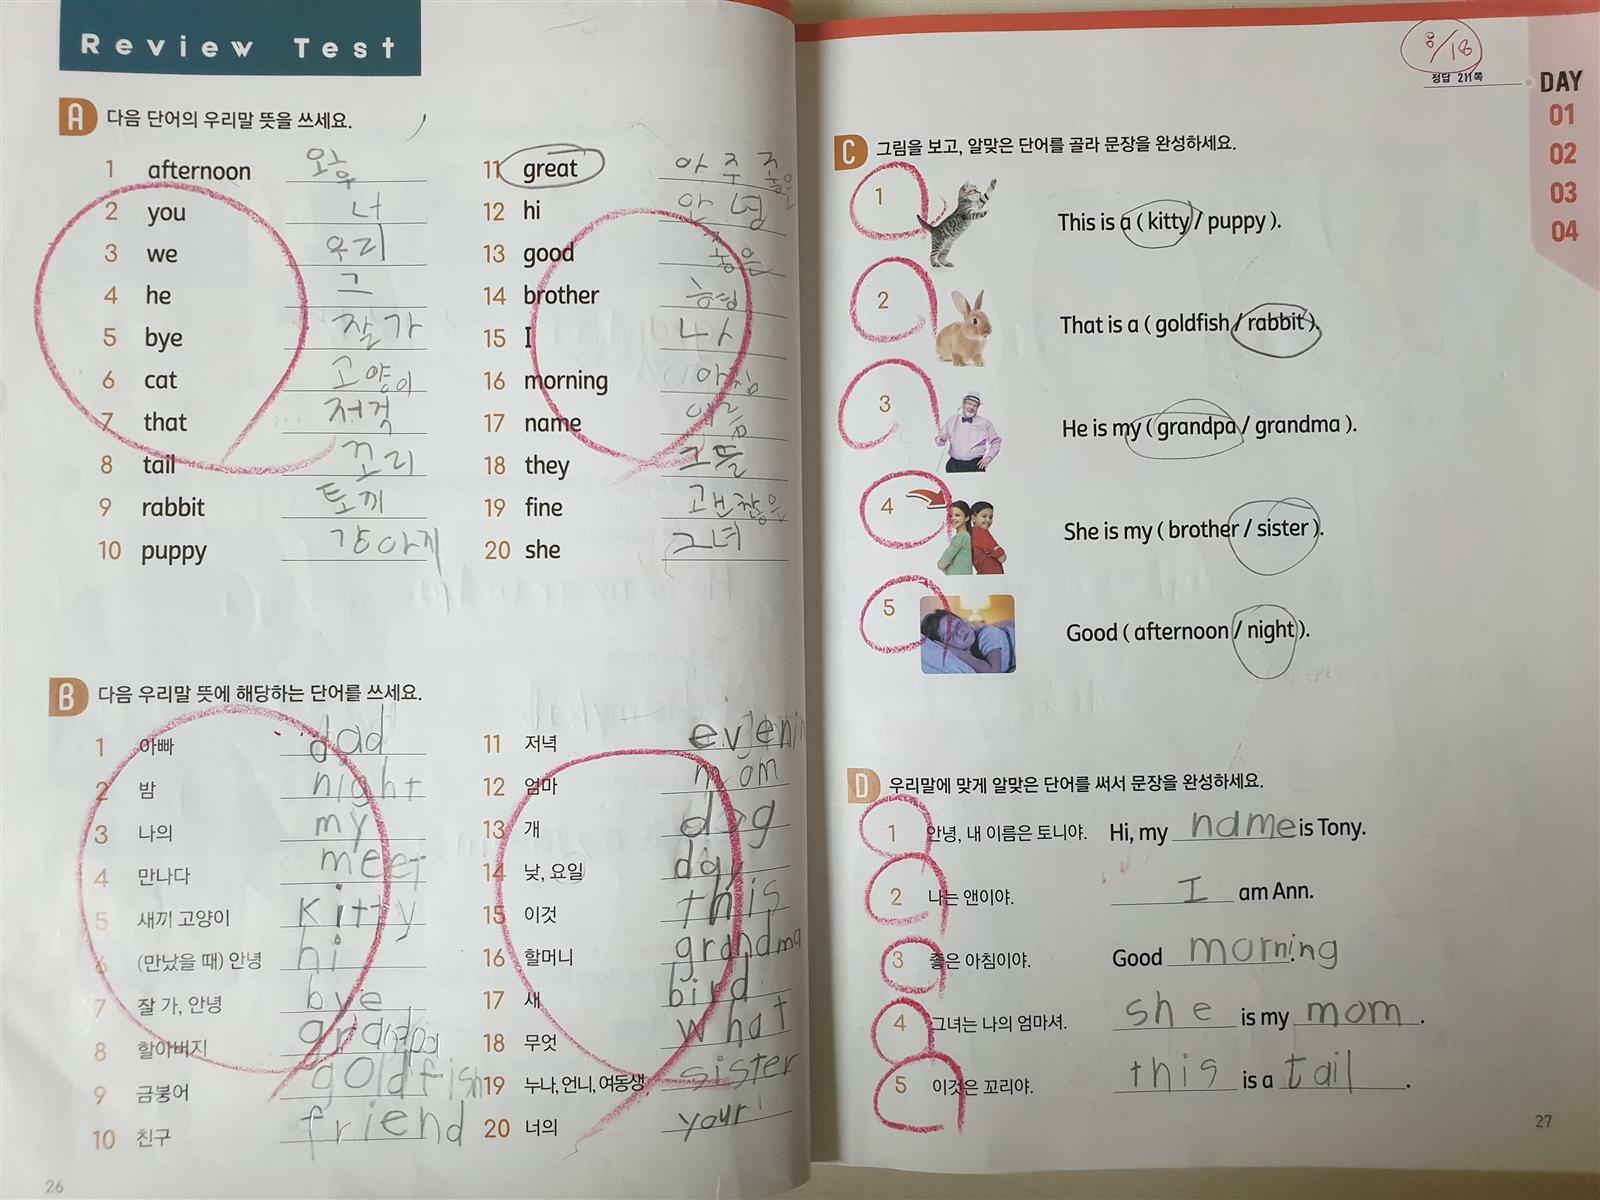 Review Test
A 다음 단어의 우리말 뜻을 쓰세요.
1 afternoon 오후
2 you 너
3 we 우리
4 he 그
5 bye 잘가
6 cat 고양이
7 that 저것
8 tail 꼬리
9 rabbit 토끼
10 puppy 강아지
11 great 아주 좋은
12 hi 안녕
13 good 좋은
14 brother 형
15 I 나
16 morning 아침
17 name 이름
18 they 그들
19 fine 괜찮은
20 she 그녀
B 다음 우리말 뜻에 해당하는 단어를 쓰세요.
1 아빠 dad
2 밤 night
3 나의 my
4 만나다 meet
5 새끼 고양이 kitty
6 (만났을 때) 안녕 hi
7 잘 가, 안녕 bye
8 할아버지 grandpa
9 금붕어 goldfish
10 친구 friend
11 저녁
12 엄마 mom
13 개 dog
14 낮, 요일 day
15 이것 this
16 할머니 grandma
17 새 bird
18 무엇 what
19 누나, 언니, 여동생 sister
20 너의 your
26
8/18
정답 211쪽
DAY
01
02
03
04
C 그림을 보고, 알맞은 단어를 골라 문장을 완성하세요.
1 This is a ( kitty / puppy ).
2 That is a ( goldfish / rabbit ).
3 He is my ( grandpa / grandma ).
4 She is my ( brother / sister ).
5 Good ( afternoon / night ).
D 우리말에 맞게 알맞은 단어를 써서 문장을 완성하세요.
1 안녕, 내 이름은 토니야. Hi, my name is Tony.
2 나는 앤이야. I am Ann.
3 좋은 아침이야. Good morning.
4 그녀는 나의 엄마셔. she is my mom.
5 이것은 꼬리야. this is a tail.
27